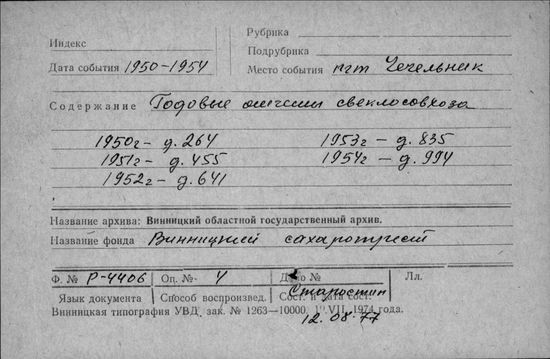 Рубрика
Индекс
Подрубрика
Дата события 1950-1954 Место события пгт Чечельник
Содержание Годовые отчеты свеклосовхоза
1950г- д.264 1953г- д.835
1951г- д.455 1954г- д.994
1952г- д.641
Название архива: Винницкий областной государственный архив.
Название фонда Винницкий сахаротрест
Ф. № Р-4406 Оп. № 4 Дело № Лл.
Язык документа Способ воспроизвед. Сост. и дата сост. Старостин
Винницкая типография УВД, зак. № 1263—10000, VII. 1974 года.
12.08.77